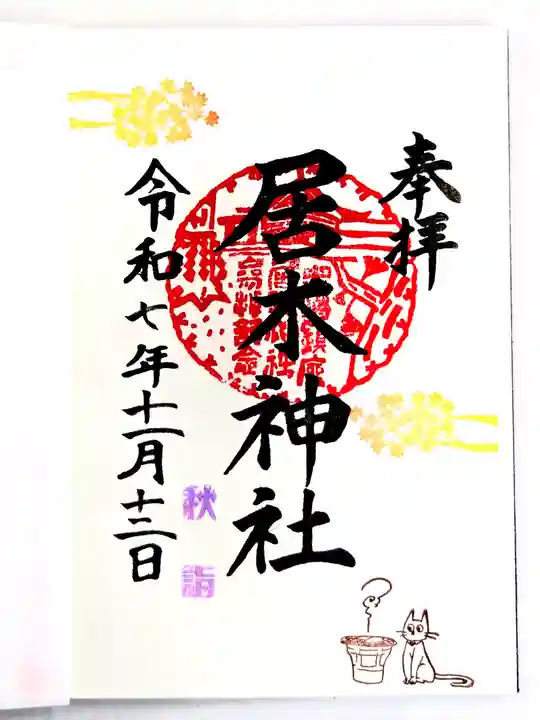 奉拝
居木神社
令和七年十一月十三日
秋詣